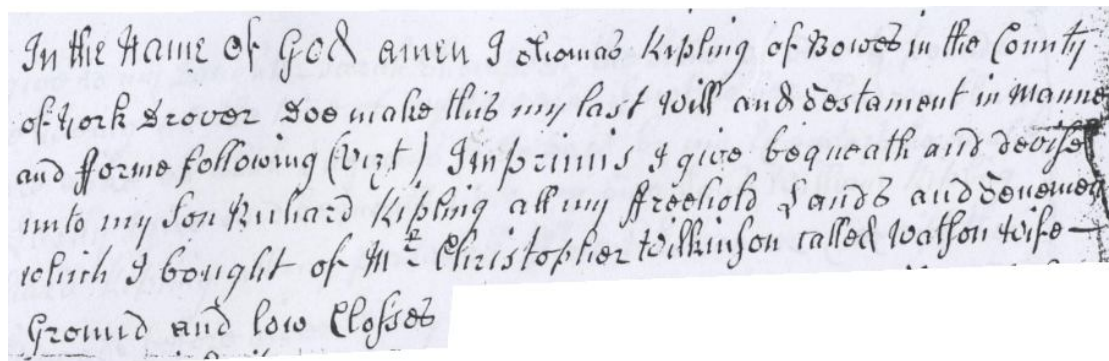 In the Name of God amen I Thomas Kipling of Bowes in the County
of York Drover Doe make this my last Will and Testament in Manne
and fforme following (Vizt) Imprimis I give bequeath and devise
unto my Son Richard Kipling all my ffreehold Lands and Tenemen
which I bought of Mr Christopher Wilkinson called Watson Wife
Ground and low Closses